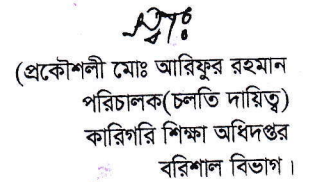 (প্রকৌশলী মোঃ আরিফুর রহমান
পরিচালক(চলতি দায়িত্ব)
কারিগরি শিক্ষা অধিদপ্তর
বরিশাল বিভাগ।